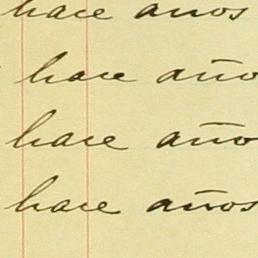 hace anos
hace año
hace año
hace años